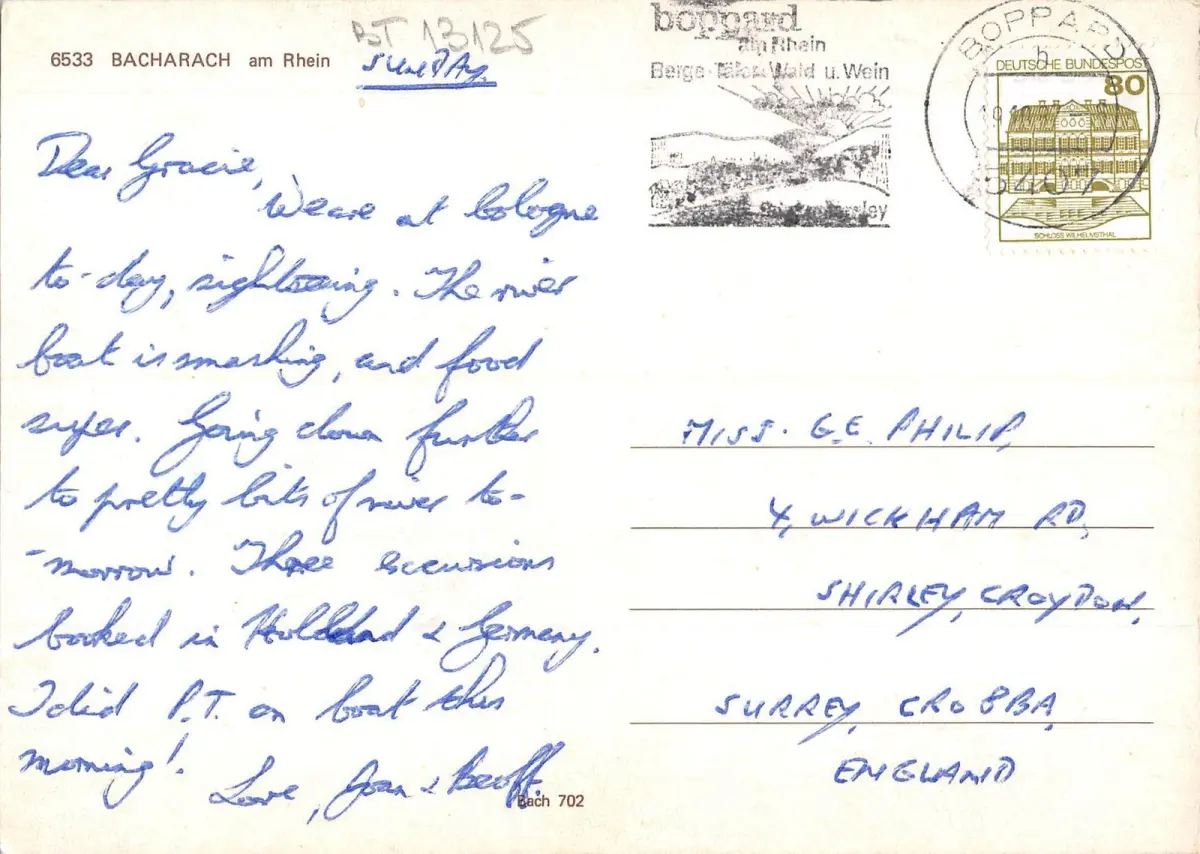 BT 13125
6533 BACHARACH am Rhein
SUNDAY
Dear Gracie,
We are at Cologne
to-day, sightseeing. The river
boat is smashing, and food
super. Going down further
to pretty bits of river to-
-morrow. Three excursions
booked in Holland & Germany.
I did P.T. on boat this
morning!
Love, Joan & Geoff.
Bach 702
boppard
am Rhein
Berge Täler Wald u. Wein
BOPPARD
b
5407
DEUTSCHE BUNDESPOST
80
SCHLOSS WILHELMSTHAL
MISS. G.E. PHILIP,
4, WICKHAM RD,
SHIRLEY, CROYDON,
SURREY, CR0 8BA,
ENGLAND